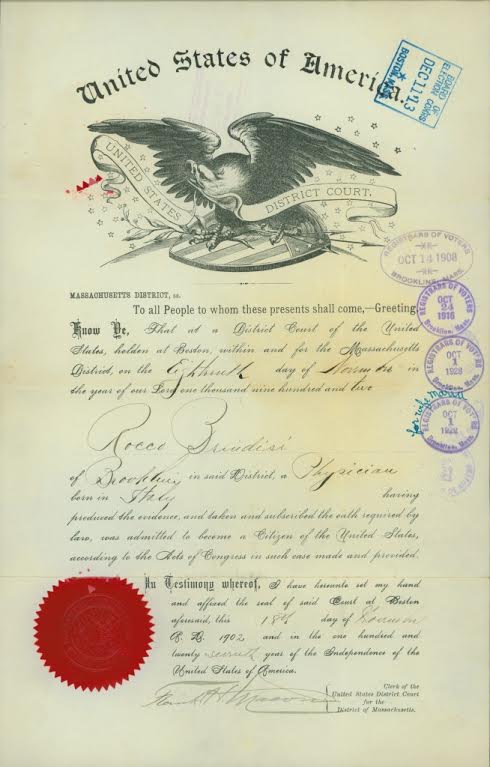 United States of America.
BOARD OF
ELECTION COM'RS
DEC 11 13
BOSTON, MASS.
UNITED STATES
DISTRICT COURT.
REGISTRARS OF VOTERS
OCT 14 1908
BROOKLINE, MASS.
MASSACHUSETTS DISTRICT, ss.
To all People to whom these presents shall come,—Greeting:
REGISTRARS OF VOTERS
OCT
24
1916
Brookline, Mass.
Know Ye, That at a District Court of the United
States, holden at Boston, within and for the Massachusetts
District, on the Eighteenth day of November in
the year of our Lord one thousand nine hundred and two
REGISTRARS OF VOTERS
OCT
1
1928
Brookline, Mass.
for wife Maria
OCT
1
Brookline, Mass.
Rocco Brindisi
of Brookline in said District, a Physician
born in Italy having
produced the evidence, and taken and subscribed the oath required by
law, was admitted to become a Citizen of the United States,
according to the Acts of Congress in such case made and provided.
In Testimony whereof, I have hereunto set my hand
and affixed the seal of said Court at Boston
aforesaid, this 18th day of November
A. D. 1902 and in the one hundred and
twenty seventh year of the Independence of the
United States of America.
Clerk of the
United States District Court
for the
District of Massachusetts.